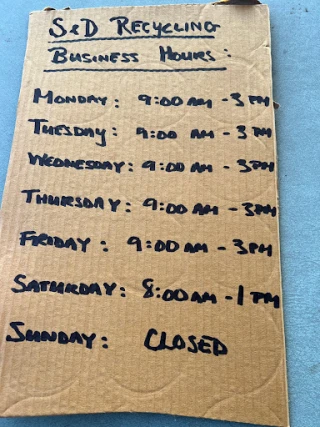 S&D RECYCLING
BUSINESS HOURS:
MONDAY: 9:00 AM - 3 PM
TUESDAY: 9:00 AM - 3 PM
WEDNESDAY: 9:00 AM - 3 PM
THURSDAY: 9:00 AM - 3 PM
FRIDAY: 9:00 AM - 3 PM
SATURDAY: 8:00 AM - 1 PM
SUNDAY: CLOSED